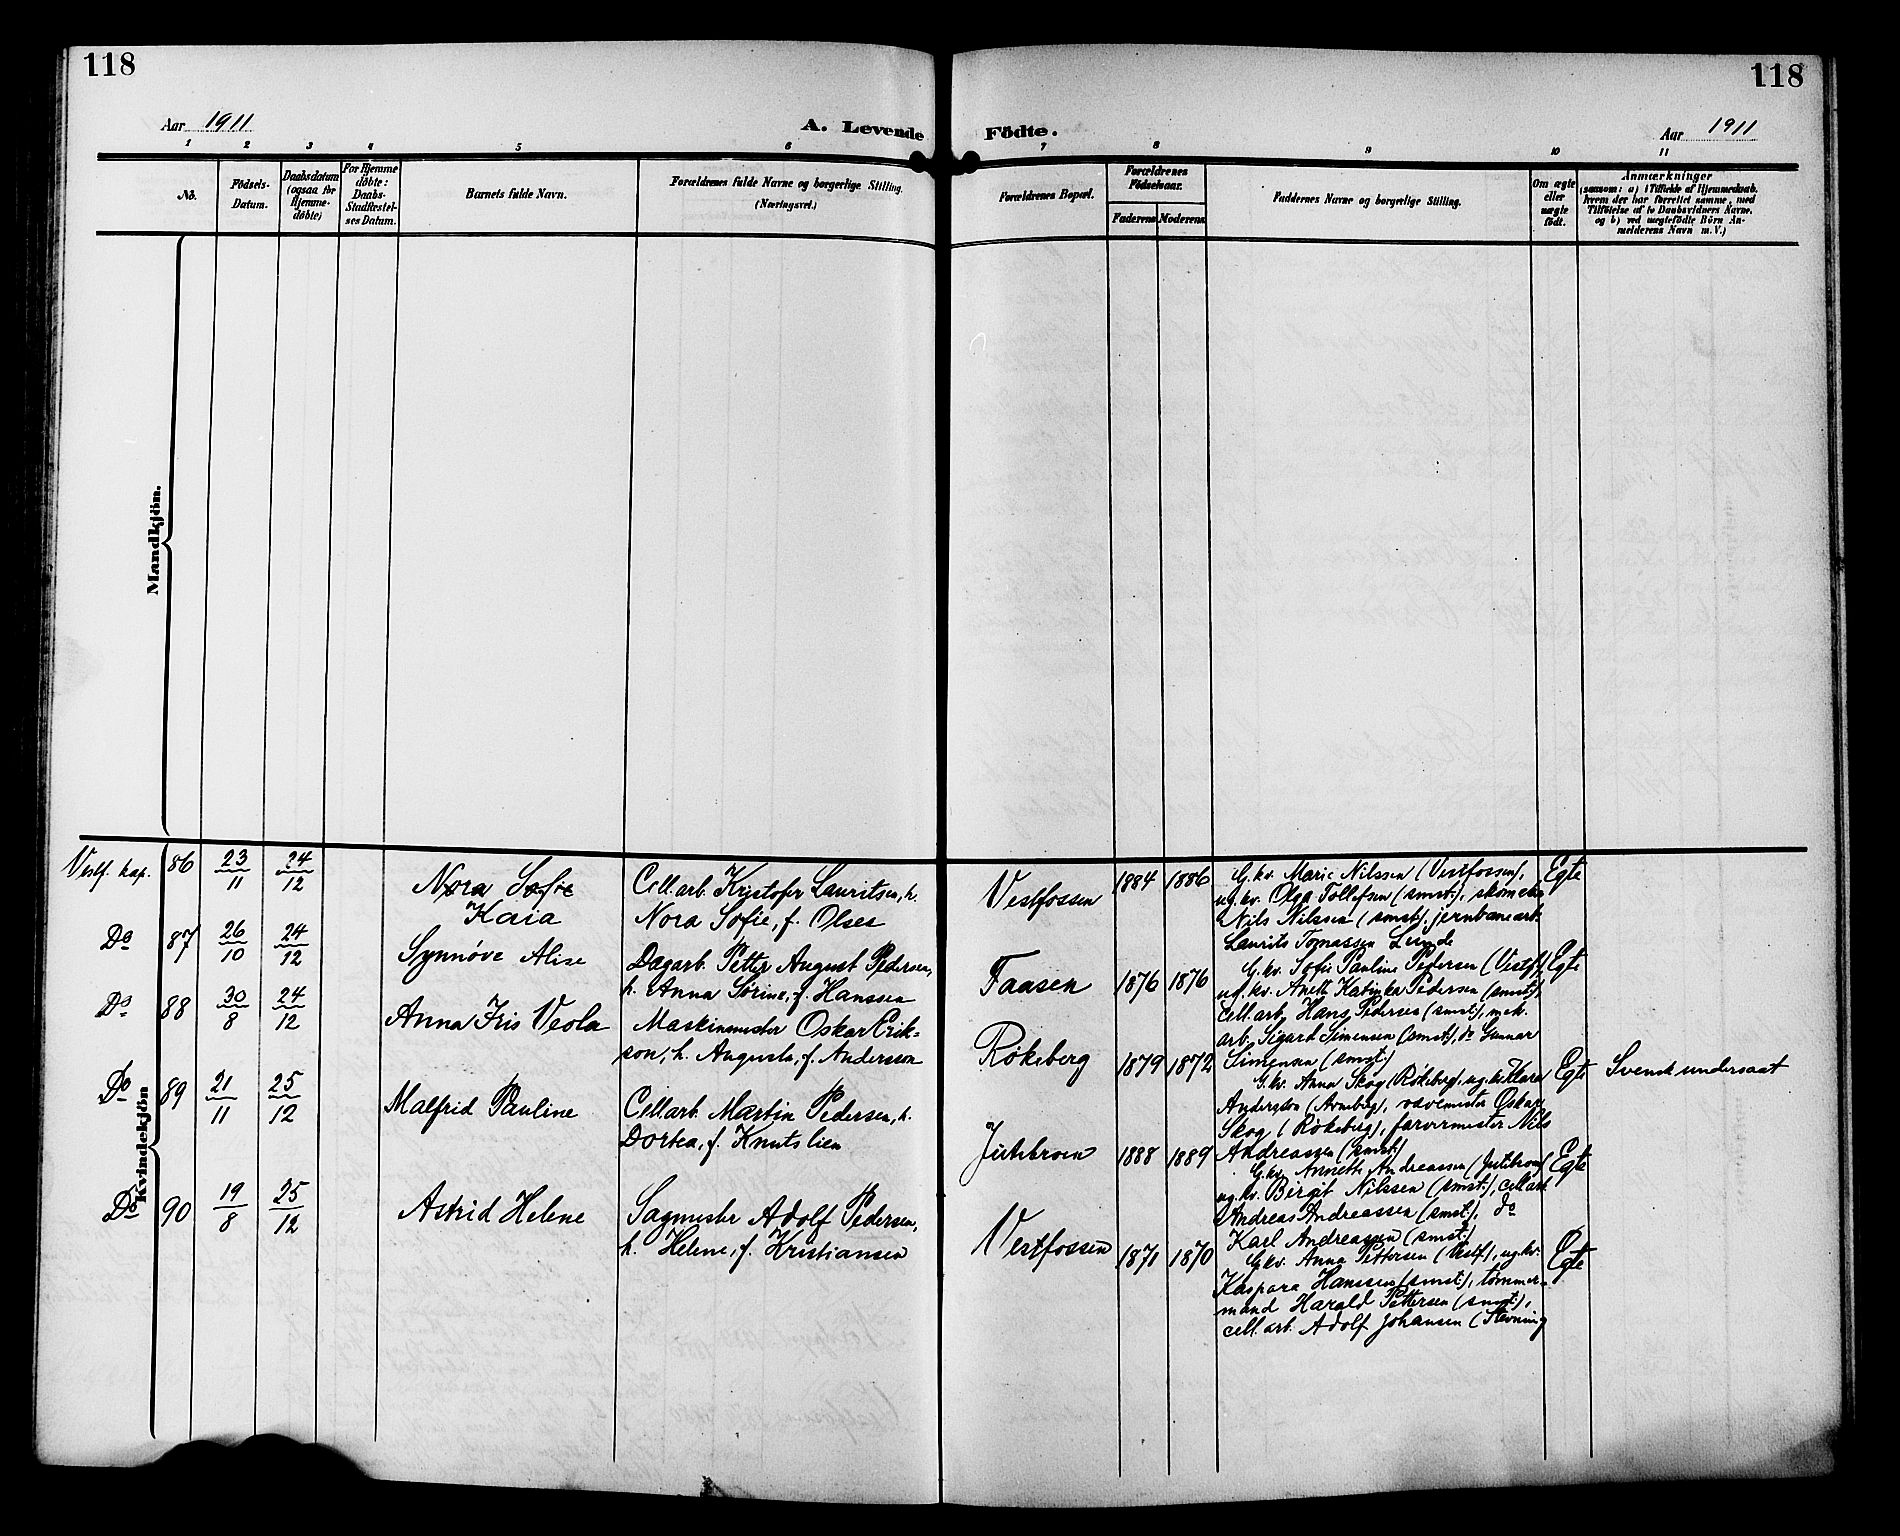 118
118
Aar 1911
A. Levende Födte.
Aar 1911
1 2 3 4 5 6 7 8 9 10 11
No.
Födsels-
Datum.
Daabsdatum
(ogsaa for
Hjemme-
döbte)
For Hjemme
döbte:
Daabs-
Stadfæstel-
ses Datum.
Barnets fulde Navn.
Forældrenes fulde Navne og borgerlige Stilling.
(Næringsvei.)
Forældrenes Bopæl.
Forældrenes
Födselsaar.
Faderens
Moderens
Faddernes Navne og borgerlige Stilling.
Om ægte
eller
uægte
födt.
Anmærkninger
(saasom: a) i Tilfælde af Hjemmedaab.
hvem der har forrettet samme, med
Tilföielse af to Daabsvidners Navne.
og b) ved uægtefödte Börn An-
melderens Navn m. V.)
Mandkjön.
Kvindekjön
Vestf. kap. 86 23/11 24/12
Nora Sofie
Kaia
Cell.arb. Kristofer Lauritsen, h.
Nora Sofie, f. Olsen
Vestfossen 1884 1886
G.kv. Marie Nilssen (Vestfossen),
ug.kv. Olga Tollefsen (smst.),
Nils Nilssen (smst), jernbanearb.
Laurits Tomassen Lunde
Egte
Do 87 26/10 24/12
Synnøve Alise
Dagarb. Petter August Pedersen,
h. Anna Sørine, f. Hanssen
Faasen 1876 1876
G.kv. Sofie Pauline Pedersen (Vestf),
ug.kv. Anette Katinka Pedersen (smst),
cell.arb. Hans Pedersen (smst), mek.
arb. Sigard Simensen (smst), do Gunnar
Simensen (smst.)
Egte
Do 88 30/8 24/12
Anna Iris Veola
Maskinmester Oskar Erik-
son, h. Augusta, f. Andersson
Røkeberg 1879 1872
G.kv. Anna Skog (Røkeberg), ug.kv. Klara
Andersson (Arneberg), vævemester Oskar
Skog (Røkeberg), farvermester Nils
Andreassen (smst)
Egte
Svensk undersaat
Do 89 21/11 25/12
Malfrid Pauline
Cellarb. Martin Pedersen, h.
Dortea, f. Knutslien
Jutebroen 1888 1889
G.kv. Annette Andreassen (Jutebroen)
ug.kv. Birgit Nilssen (smst.), cellarb.
Andreas Andreassen (smst), do
Karl Andreassen (smst.)
Egte
Do 90 19/8 25/12
Astrid Helene
Sagmester Adolf Pedersen,
h. Helene, f. Kristiansen
Vestfossen 1871 1870
G.kv. Anna Pettersen (Vestf), ug.kv.
Kaspara Hanssen (smst.), tømmer-
mand Harald Pettersen (smst.),
cell.arb. Adolf Johansen (Stevning
Egte